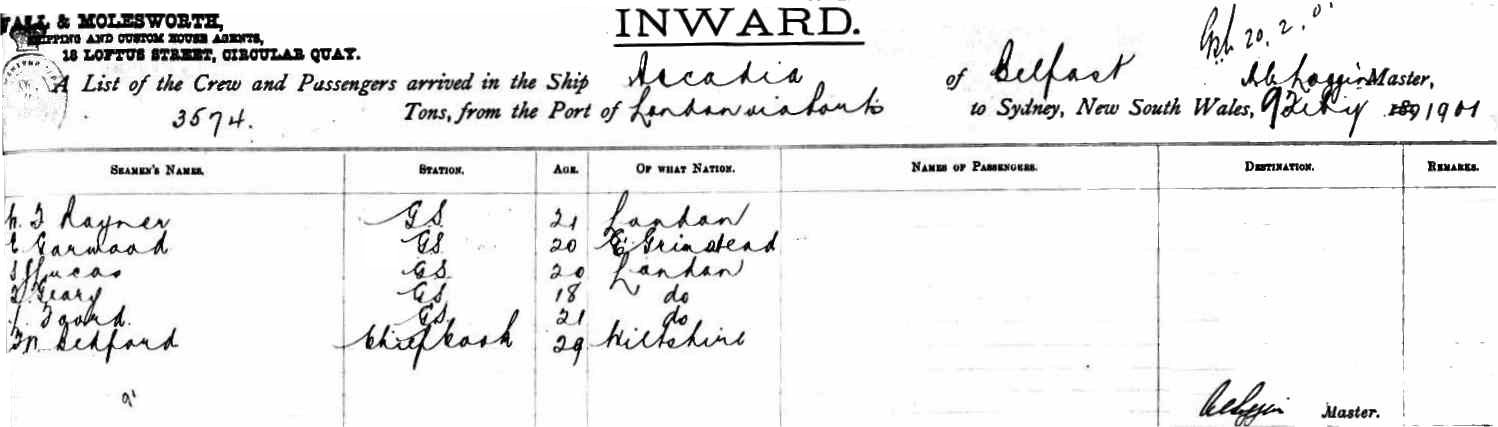 WALL & MOLESWORTH,
SHIPPING AND CUSTOM HOUSE AGENTS,
18 LOFTUS STREET, CIRCULAR QUAY.
INWARD.
20.2.01
A List of the Crew and Passengers arrived in the Ship Arcadia of Belfast Master,
3574. Tons, from the Port of London via Ports to Sydney, New South Wales, 9 Feby 189 1901
SEAMEN'S NAMES. STATION. AGE. OF WHAT NATION. NAMES OF PASSENGERS. DESTINATION. REMARKS.
Rayner GS 21 London
E Garwood GS 20 E. Grinstead
Lucas GS 20 London
Geary GS 18 do
Foord GS 21 do
Bedford Chief Cook 29 Wiltshire
Master.